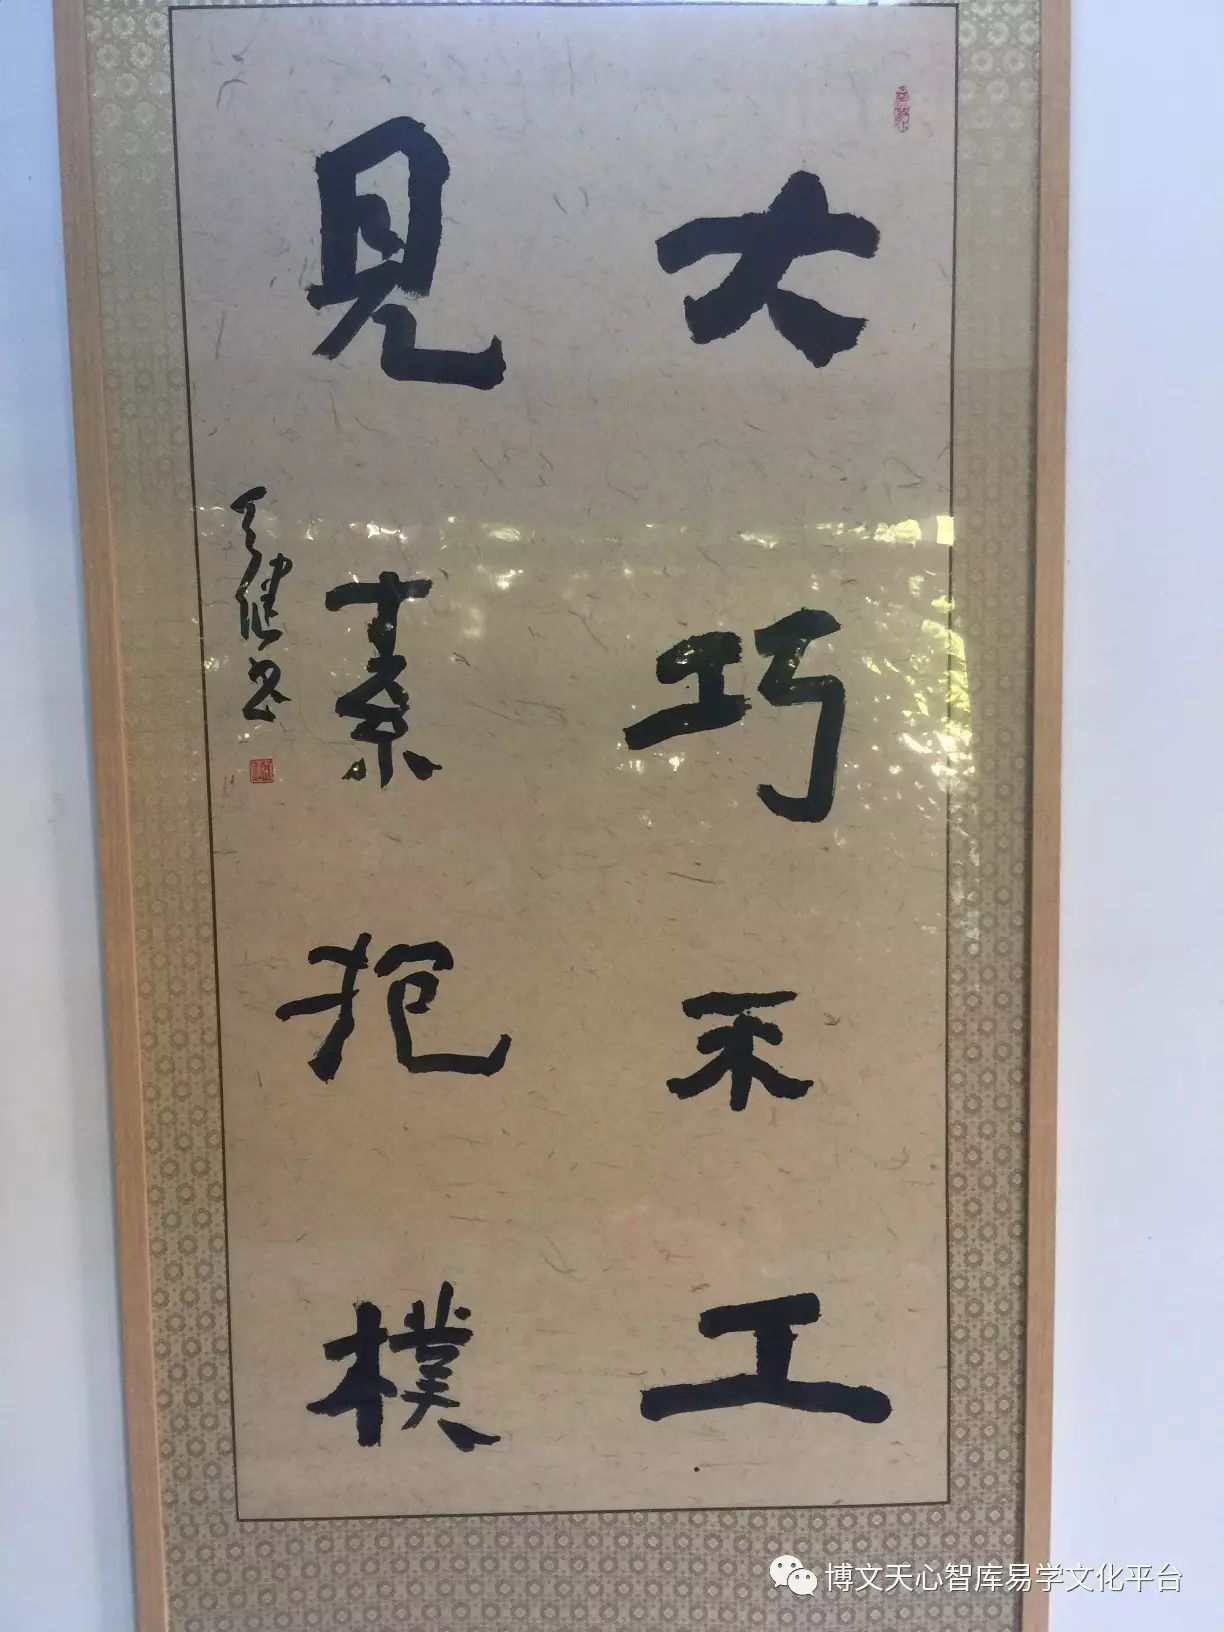 大巧不工
見素抱樸
天健书
博文天心智库易学文化平台